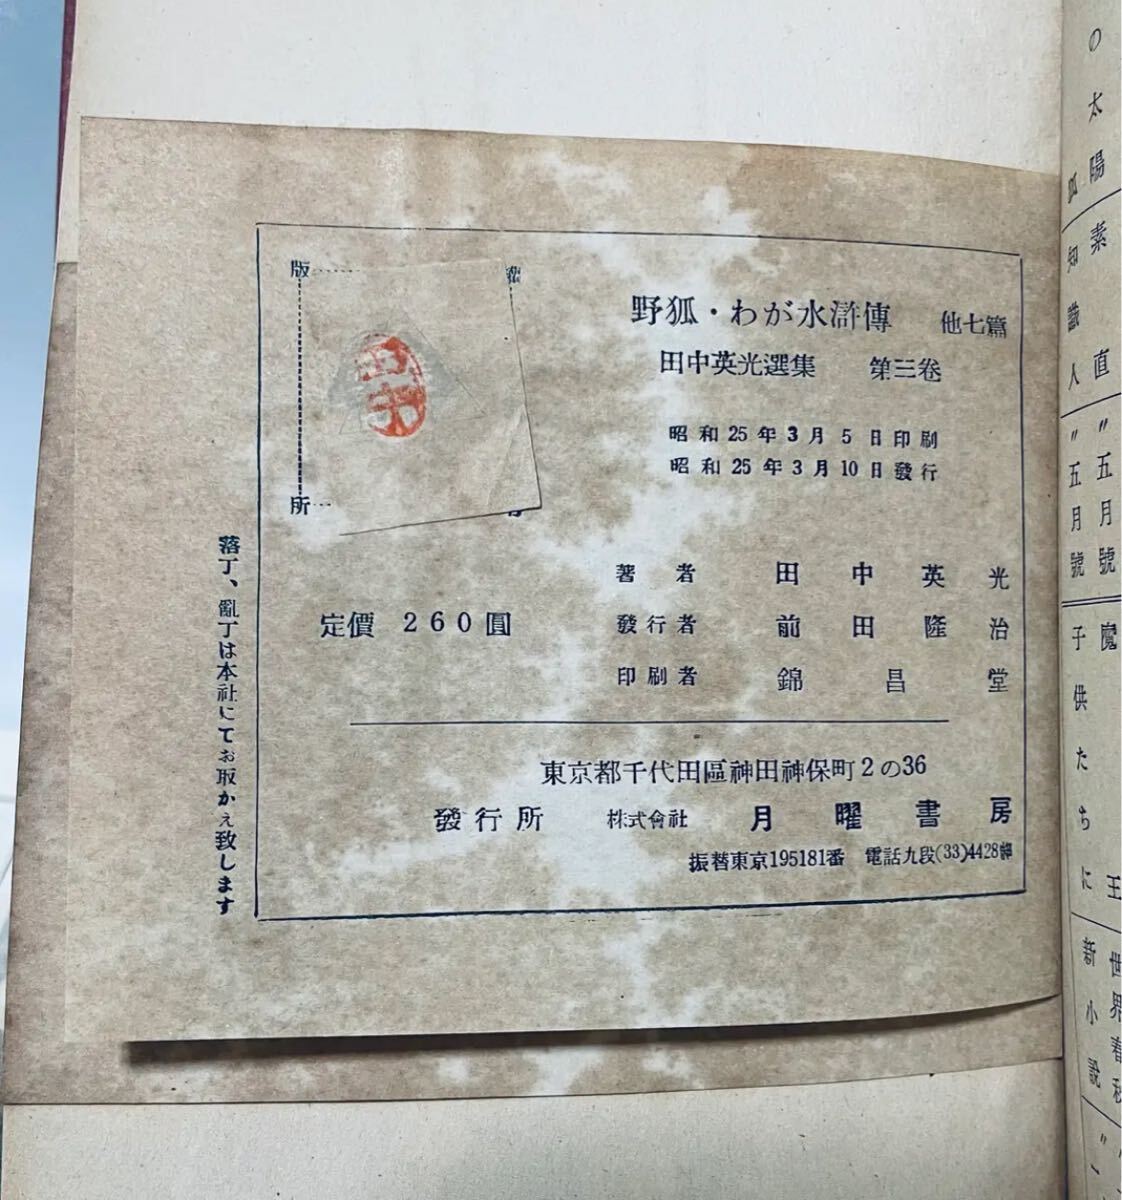 野狐・わが水滸傳　他七篇
田中英光選集　第三卷
昭和25年3月5日印刷
昭和25年3月10日發行
版
所
田中
定價 260圓
著者　田中英光
發行者　前田隆治
印刷者　錦昌堂
東京都千代田區神田神保町2の36
發行所　株式會社　月曜書房
振替東京195181番　電話九段(33)4428番
落丁、亂丁は本社にてお取かえ致します
の太陽　素直　〃五月號　魔王　世界春秋　〃
狐　知識人　〃五月號　子供たちに　新小説　〃